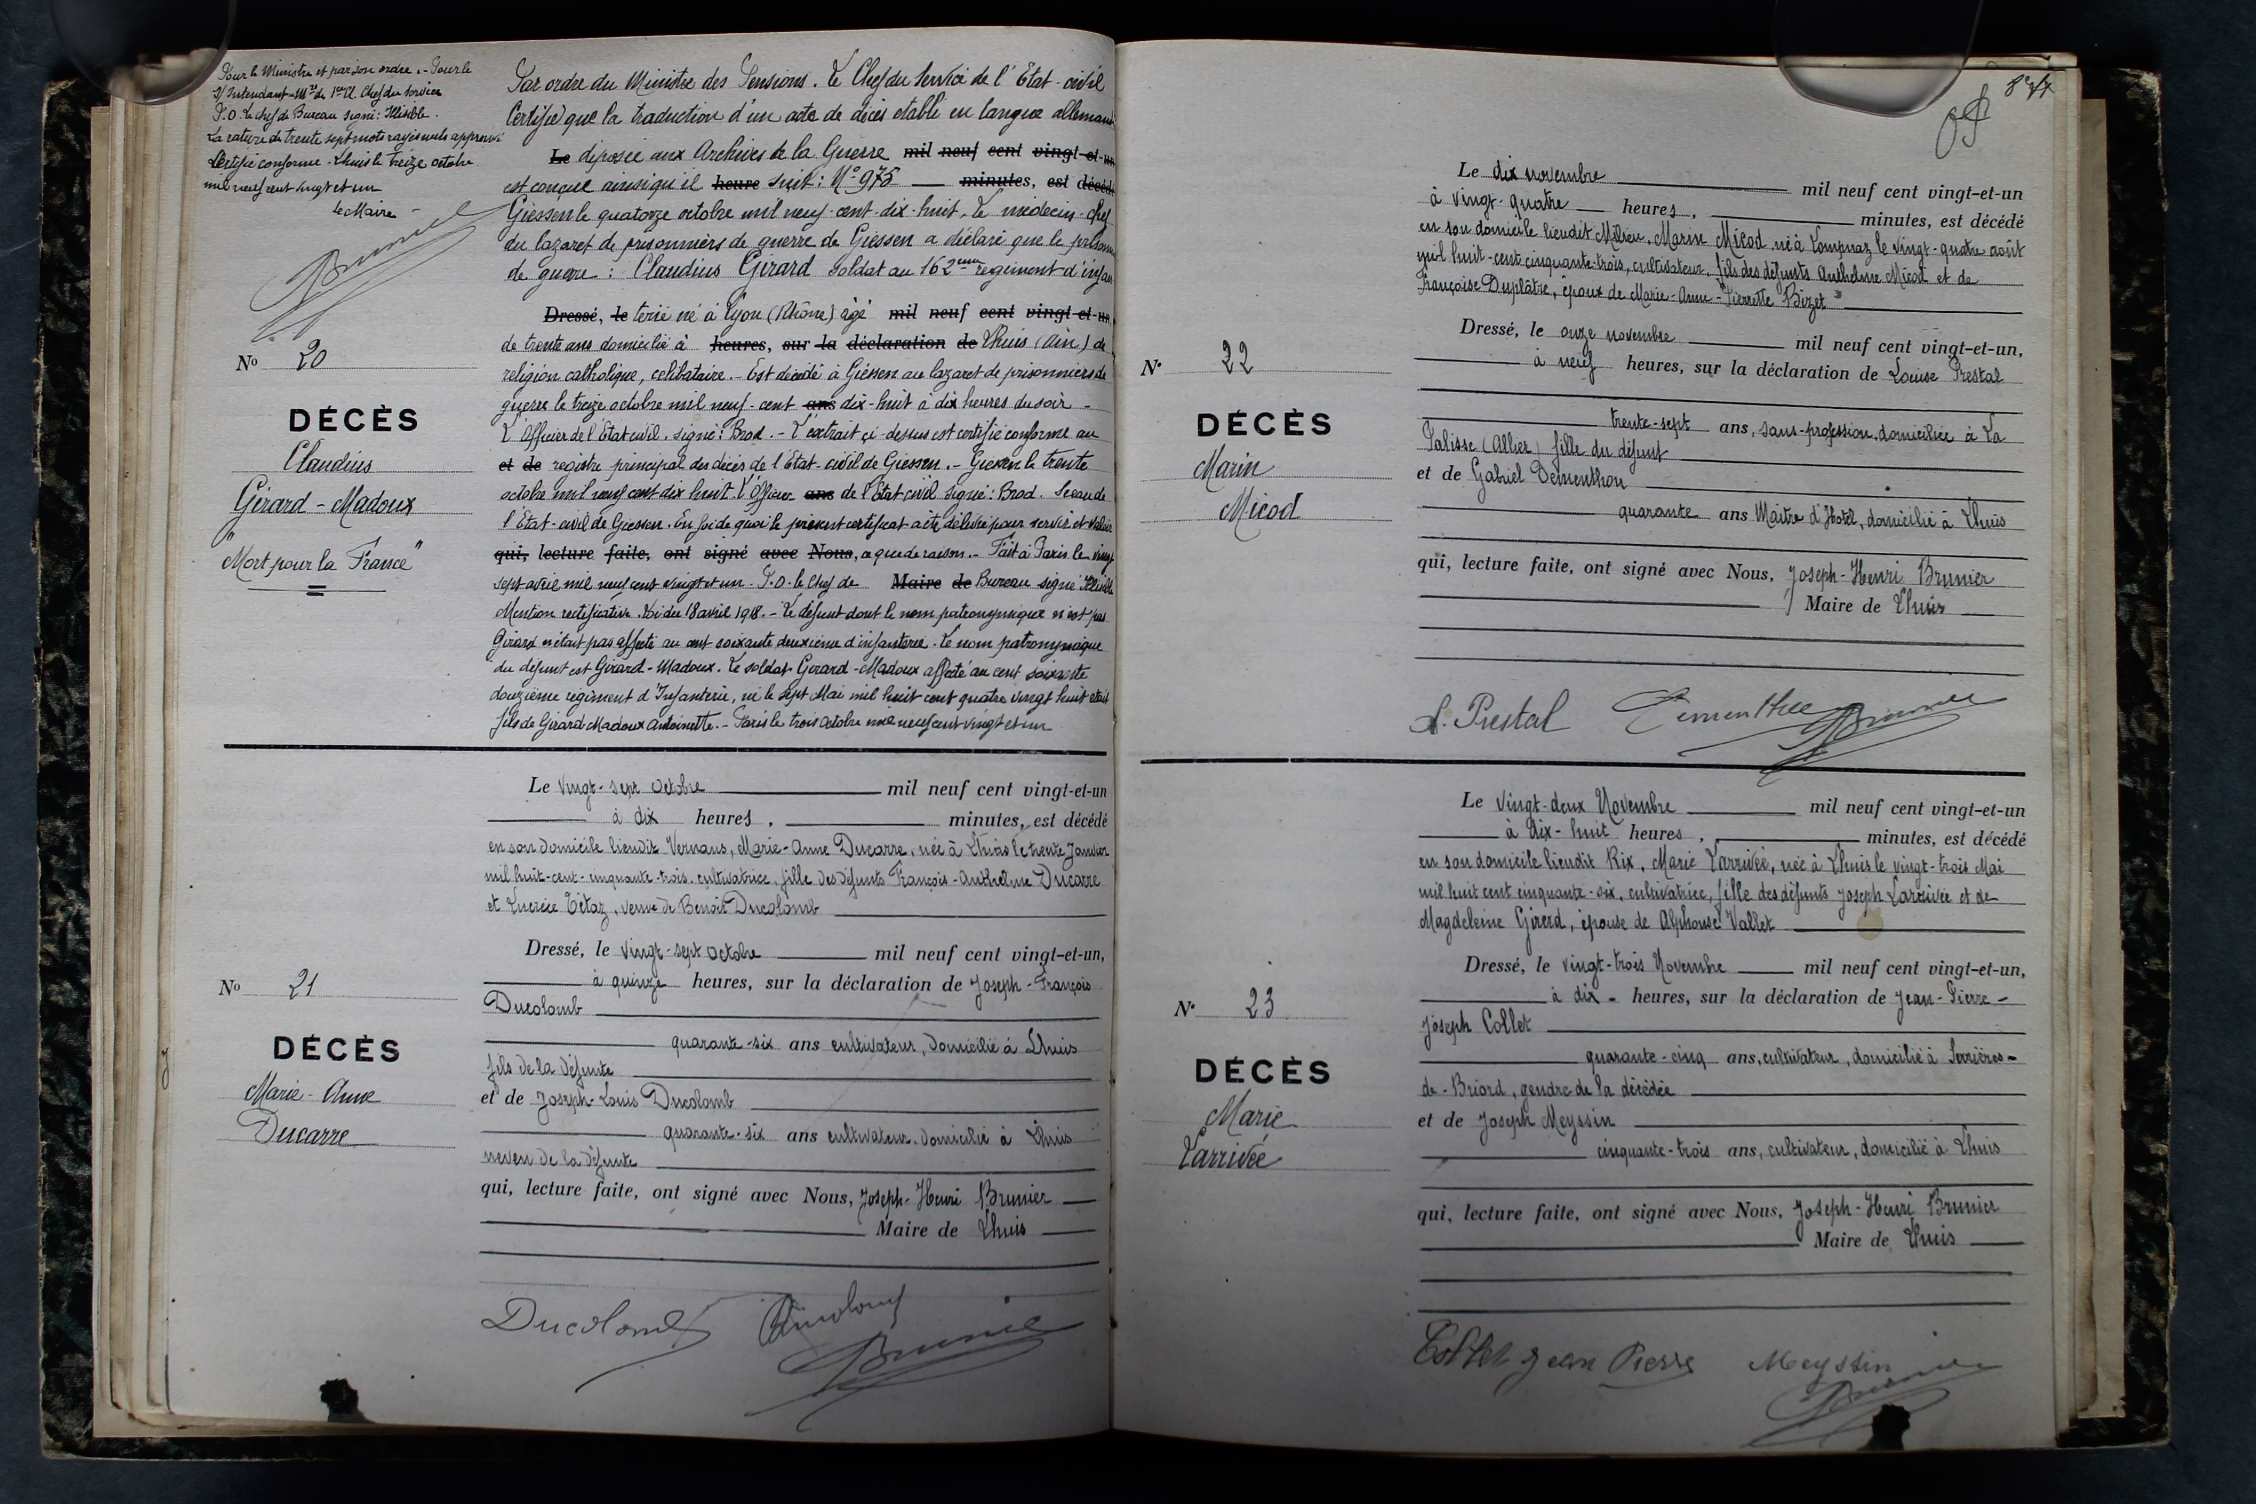 Pour le Ministre et par son ordre. - Pour le
P.O. le chef de Bureau signé: Illisible.
La rature de trente sept mots rayés nuls approuvé
Certifié conforme - Lhuis le treize octobre
mil neuf cent vingt et un
le Maire
Brunier
Nº 20
DÉCÈS
Claudius
Girard - Madoux
"Mort pour la France"
Par ordre du Ministre des Pensions. Le Chef du Service de l'Etat-civil
Certifie que la traduction d'un acte de décès établi en langue allemande
Le déposée aux Archives de la Guerre mil neuf cent vingt-et-un
est conçue ainsi qu'il heure suit: Nº 975 minutes, est décédé
Giessen le quatorze octobre mil neuf-cent-dix-huit. Le médecin-chef
du lazaret de prisonniers de guerre de Giessen a déclaré que le prisonn
de guerre: Claudius Girard soldat au 162ème régiment d'infan
Dressé, le terie né à Lyon (Rhône) âgé mil neuf cent vingt-et-un,
de trente ans domicilié à heures, sur la déclaration de Lhuis (Ain) de
religion catholique, célibataire. - Est décédé à Giessen au lazaret de prisonniers de
guerre le treize octobre mil neuf-cent ans dix-huit à dix heures du soir -
L'Officier de l'Etat civil. signé: Brod. - L'extrait ci-dessus est certifié conforme au
et de registre principal des décès de l'Etat-civil de Giessen. - Giessen le trente
octobre mil neuf cent dix huit. L'Officier ans de l'Etat civil signé: Brod. Sceau de
l'Etat-civil de Giessen. En foi de quoi le présent certificat a été délivré pour servir et valoir
qui, lecture faite, ont signé avec Nous, ce que de raison. - Fait à Paris le vingt
sept avril mil neuf cent vingt et un. P.O. le Chef de Maire de Bureau signé: Illisible
Mention rectificative. Loi du 18 avril 1918. - Le défunt dont le nom patronymique n'est pas
Girard n'était pas affecté au cent soixante deuxième d'infanterie. Le nom patronymique
du défunt est Girard-Madoux. Le soldat Girard-Madoux affecté au cent soixante
douzième régiment d'Infanterie, né le sept Mai mil huit cent quatre vingt huit était
fils de Girard Madoux Antoinette. - Paris le trois octobre mil neuf cent vingt et un
Nº 21
DÉCÈS
Marie-Anne
Ducarre
Le vingt-sept octobre mil neuf cent vingt-et-un
à dix heures, minutes, est décédé
en son domicile lieudit Vernans, Marie-Anne Ducarre, née à Lhuis le trente Janvier
mil huit-cent-cinquante-trois, cultivatrice, fille des défunts François-Anthelme Ducarre
et Lucrèce Tétaz, veuve de Benoît Ducolomb
Dressé, le vingt-sept octobre mil neuf cent vingt-et-un,
à quinze heures, sur la déclaration de Joseph-François
Ducolomb
quarante-six ans cultivateur, domicilié à Lhuis
fils de la défunte
et de Joseph-Louis Ducolomb
quarante-six ans cultivateur, domicilié à Lhuis
neveu de la défunte
qui, lecture faite, ont signé avec Nous, Joseph-Henri Brunier
Maire de Lhuis
Ducolomb Ducolomb
Brunier
Nº 22
DÉCÈS
Marin
Micod
Le dix novembre mil neuf cent vingt-et-un
à vingt-quatre heures, minutes, est décédé
en son domicile lieudit Milieu, Marin Micod né à Lompnaz le vingt-quatre août
mil huit-cent cinquante-trois, cultivateur, fils des défunts Anthelme Micod et de
Françoise Duplâtre, époux de Marie-Anne-Pierrette Bizet
Dressé, le onze novembre mil neuf cent vingt-et-un,
à neuf heures, sur la déclaration de Louise Prestal
trente-sept ans, sans-profession, domiciliée à La
Palisse (Allier) fille du défunt
et de Gabriel Dementhon
quarante ans Maître d'Hotel, domicilié à Lhuis
qui, lecture faite, ont signé avec Nous, Joseph-Henri Brunier
Maire de Lhuis
L. Prestal Dementhon Brunier
Nº 23
DÉCÈS
Marie
Larrivée
Le vingt-deux Novembre mil neuf cent vingt-et-un
à dix-huit heures, minutes, est décédé
en son domicile lieudit Rix, Marie Larrivée, née à Lhuis le vingt-trois Mai
mil huit cent cinquante-six, cultivatrice, fille des défunts Joseph Larrivée et de
Magdeleine Girerd, épouse de Alphonse Vallet
Dressé, le vingt-trois Novembre mil neuf cent vingt-et-un,
à dix - heures, sur la déclaration de Jean-Pierre-
Joseph Collet
quarante-cinq ans, cultivateur, domicilié à Serrières-
de-Briord, gendre de la décédée
et de Joseph Meyssin
cinquante-trois ans, cultivateur, domicilié à Lhuis
qui, lecture faite, ont signé avec Nous, Joseph-Henri Brunier
Maire de Lhuis
Collet Jean Pierre Meyssin
Brunier